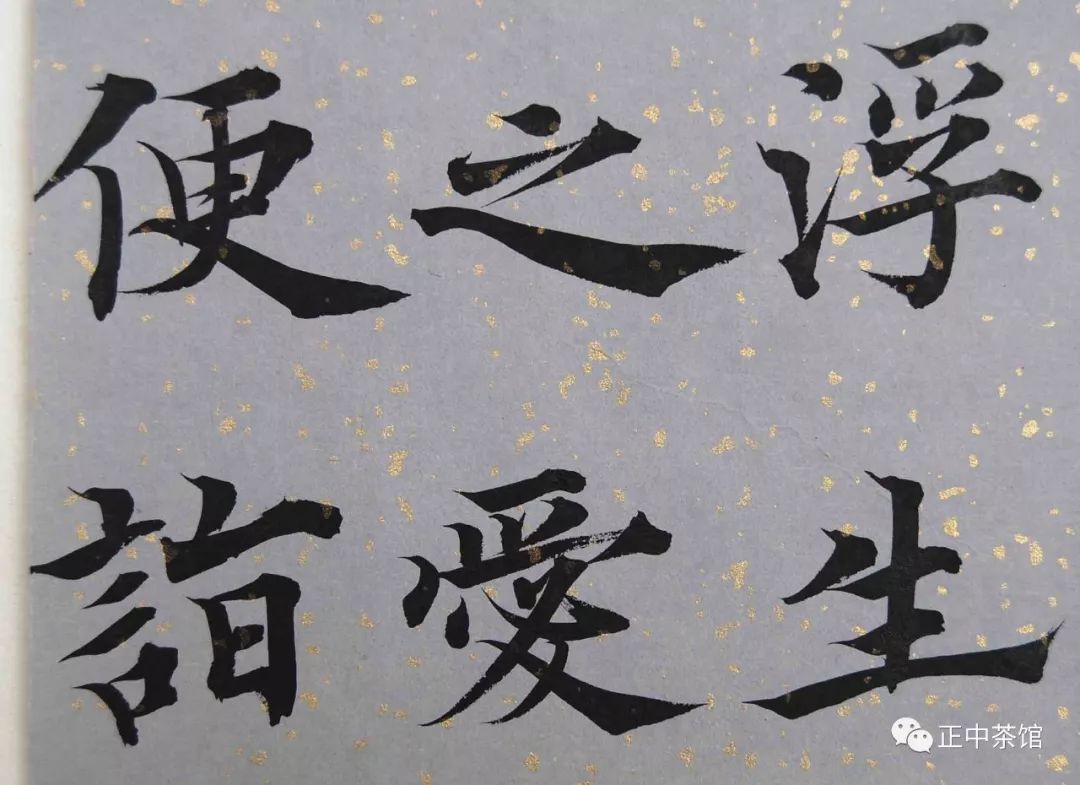 浮生
之愛
便詣
正中茶馆